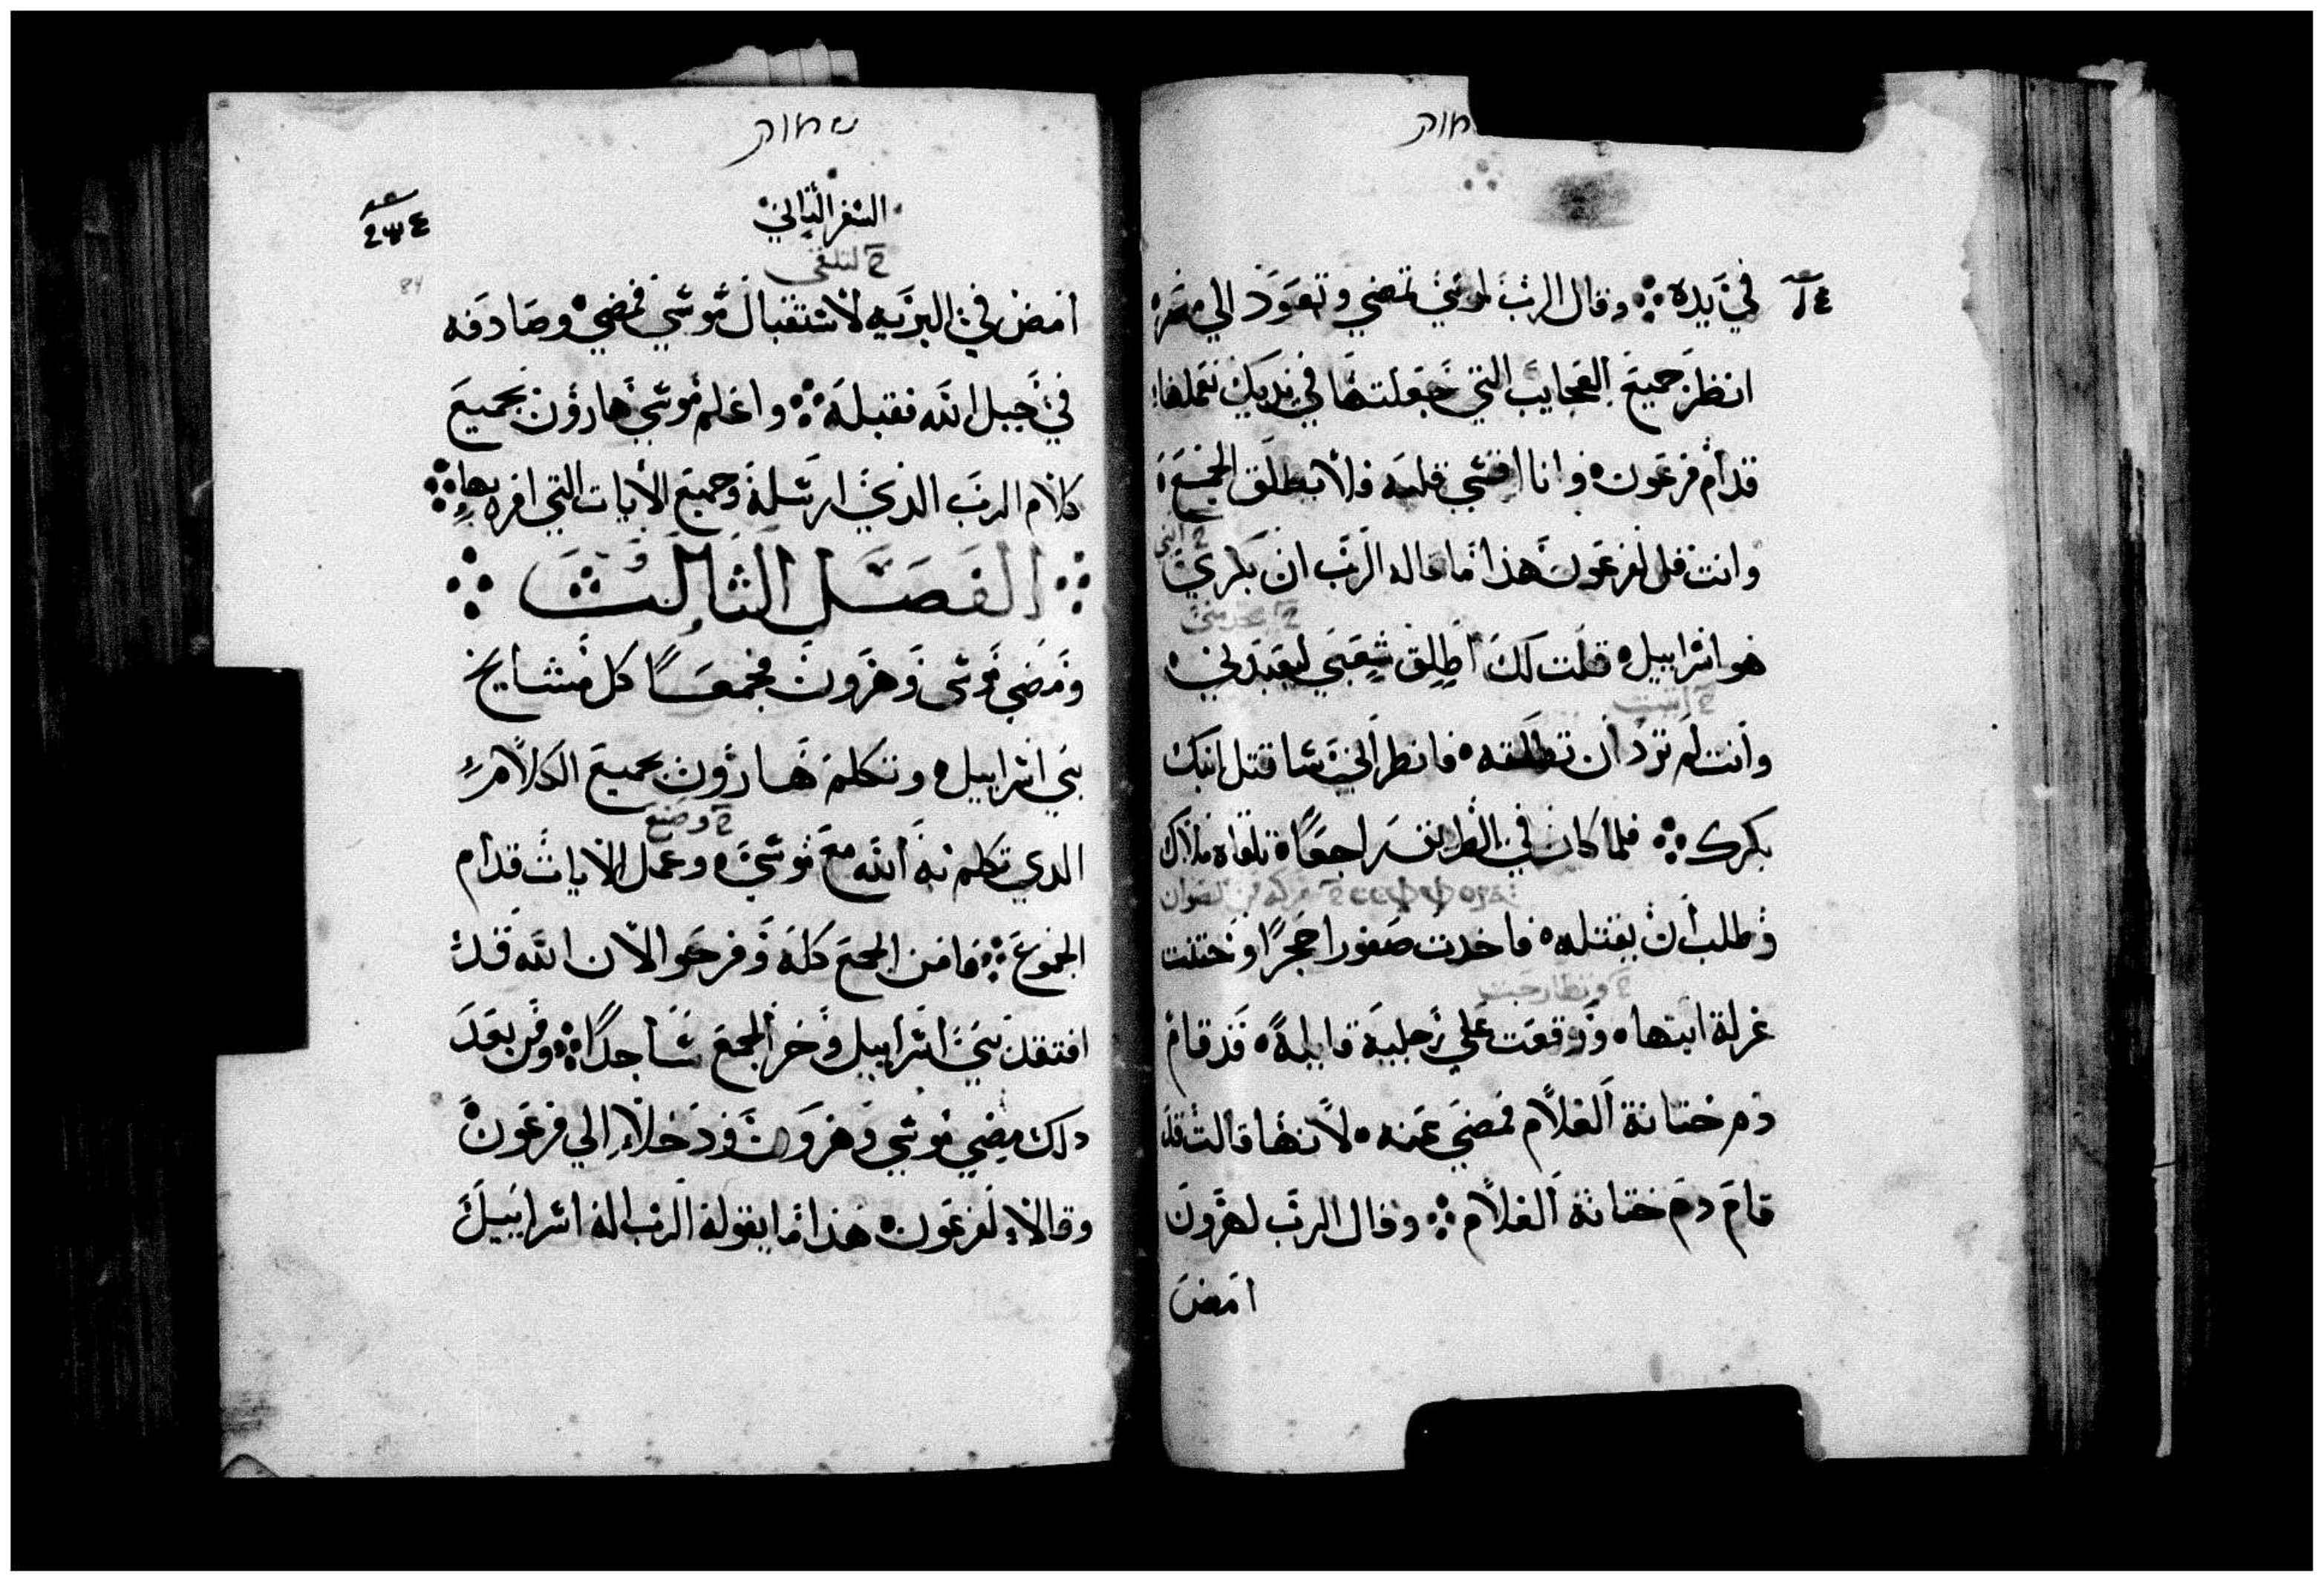 في يده ؞ وقال الرب لموسى تمضي وتعود الي مصر
انظر جميع العجايب التي جعلتها في يديك تعملها
قدام فرعون ؞ وانا اقسي قلبه ولا يطلق الجمع
وانت قل لفرعون هذا ما قاله الرب ان بكري
هو اسراييل ؞ قلت لك اطلق شعبي ليعبدني
وانت لم ترد ان تطلقه ؞ فانظر اني سا قتل ابنك
بكرك ؞ فلما كان في الطريق راجعًا تلقاه ملاك
وطلب ان يقتله ؞ فاخدت صفورا حجرًا وختنت
غرلة ابنها ؞ ووقعت علي رجليه قايلةً ؞ قد قام
دم ختانة الغلام فمضي عنه ؞ لانها قالت قد
قام دم ختانة الغلام ؞ وقال الرب لهرون
امض
שמות
السفر التاني
لتلقي
امض في البريه لاستقبال موسي فمضي وصادفه
في جبل الله فقبله ؞ واعلم موسي هارون بجميع
كلام الرب الذي ارسله وجميع الايات التي امره بها ؞
؞ الفصل الثالث ؞
ومضي موسى وهرون فجمعًا كل مشايخ
بني اسراييل ؞ وتكلم هارون بجميع الكلام
الدي تكلم به الله مع موسي ؞ وعمل الايات قدام
وصنع
الجموع ؞ فامن الجمع كله وفرحوا لان الله قد
افتقد بني اسراييل وخر الجمع ساجدًا ؞ ومن بعد
دلك مضي موسي وهرون ودخلا الي فرعون
وقالا لفرعون هذا ما يقوله الرب اله اسراييل